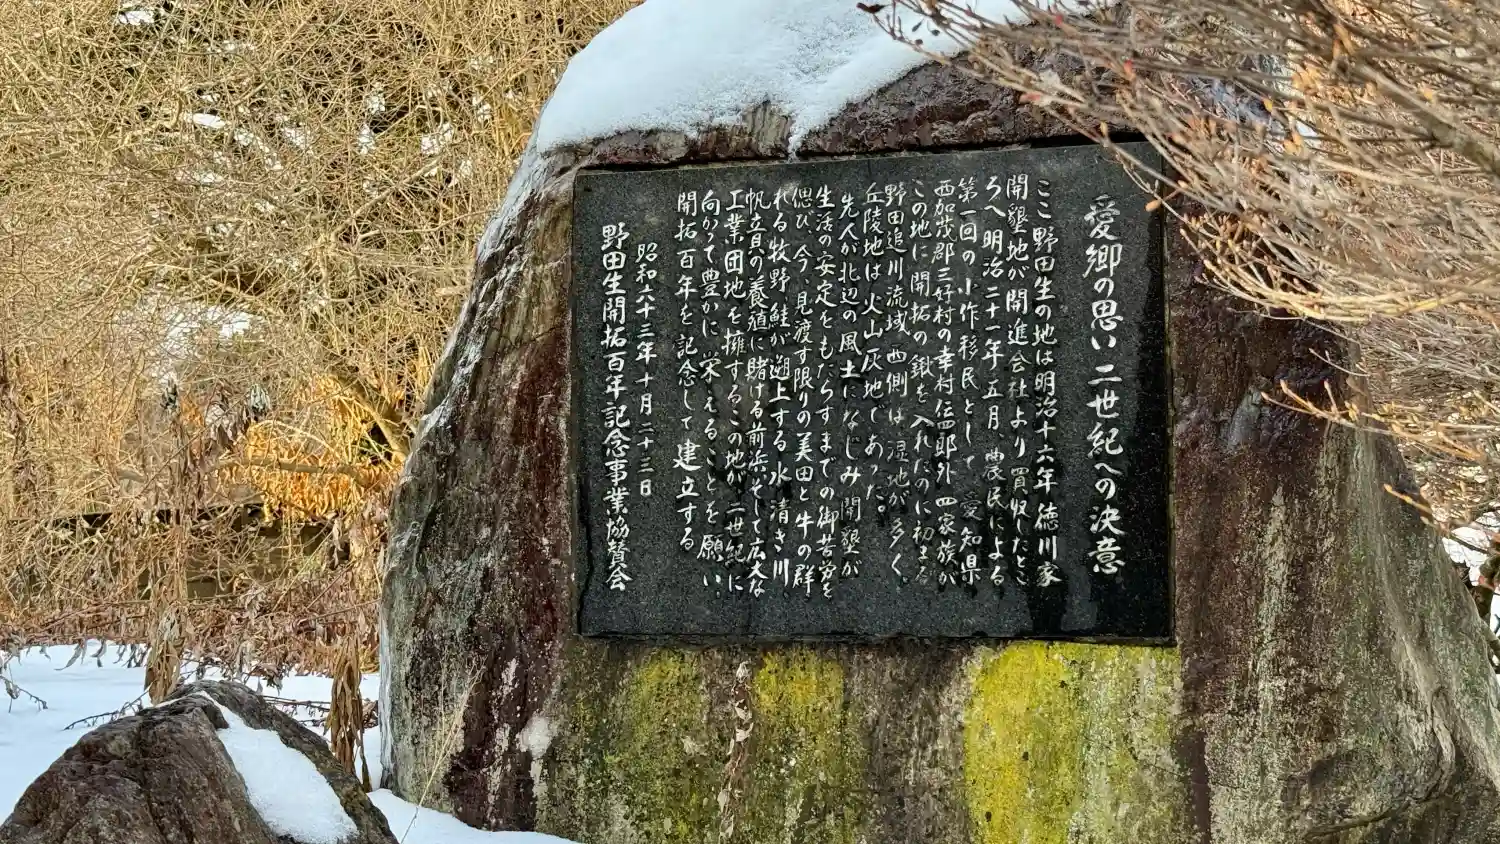 愛郷の思い 二世紀への決意
ここ野田生の地は明治十六年 徳川家
開墾地が開進会社より買収したとこ
ろへ明治二十一年五月、農民による
第一回の小作移民として 愛知県
西加茂郡三好村の幸村伝四郎外 四家族が
この地に開拓の鍬を入れたのに初まる
野田追川流域 西側は 湿地が多く、
丘陵地は火山灰地であった。
先人が北辺の風土になじみ 開墾が
生活の安定をもたらすまでの御苦労を
偲び、今、見渡す限りの美田と牛の群
れる牧野 鮭が遡上する水清き川、
帆立貝の養殖に賭ける前浜 そして広大な
工業団地を擁するこの地が、二世紀に
向かって豊かに 栄えることを願い、
開拓百年を記念して 建立する
昭和六十三年十月二十三日
野田生開拓百年記念事業協賛会